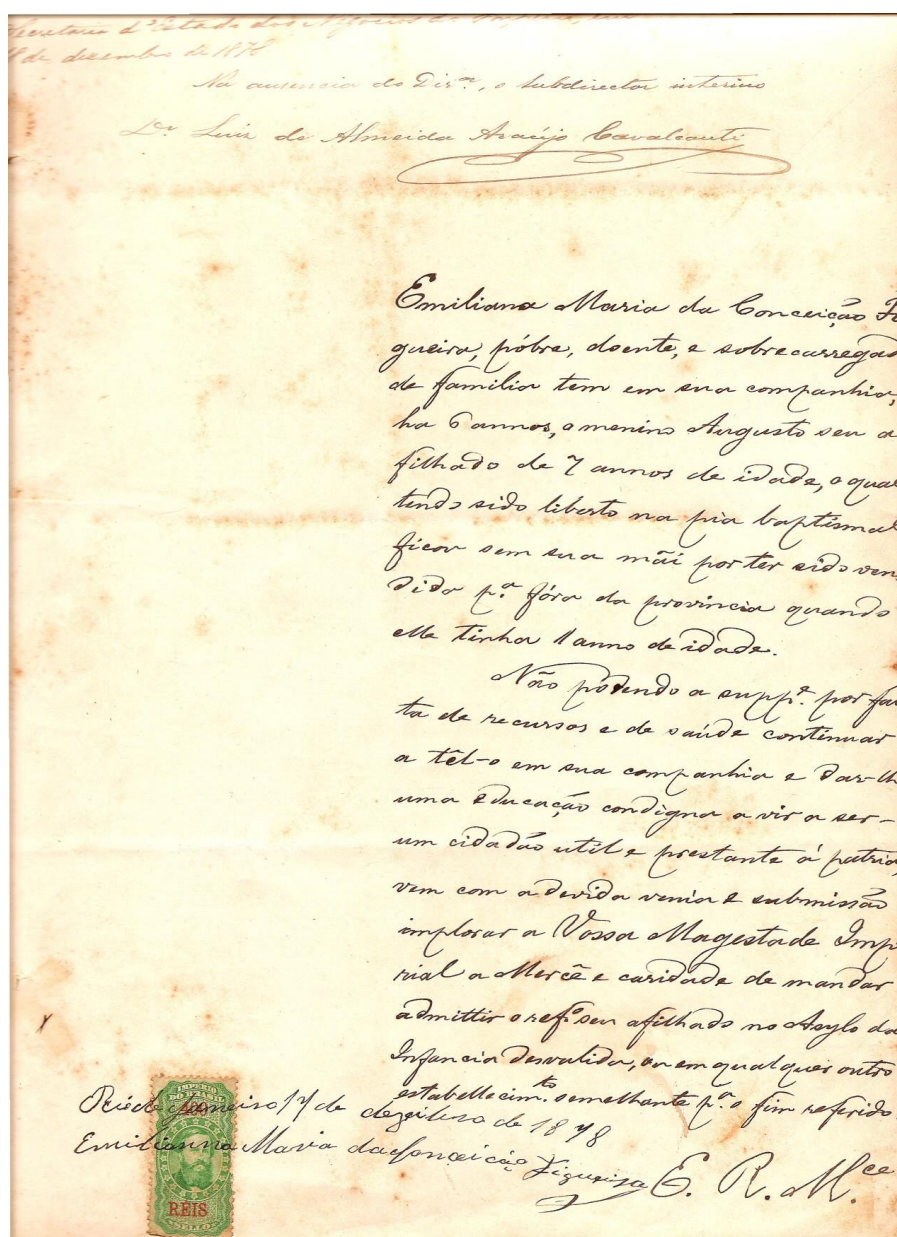 Secretaria d'Estado dos Negocios do Imperio, em
18 de dezembro de 1878
Na ausencia do Dir.or, o subdirector interino
Dr Luiz de Almeida Araújo Cavalcanti
Emiliana Maria da Conceição Fi
gueira, póbre, doente, e sobrecarregad
de familia tem em sua companhia,
ha 6 annos, o menino Augusto seu a
filhado de 7 annos de idade, o qual
tendo sido liberto na pia baptismal
ficou sem sua mãi por ter sido ven
dida p.a fóra da provincia quando
elle tinha 1 anno de idade.
Não podendo a supp.e por fal
ta de recursos e de saúde continuar
a têl-o em sua companhia e dar-lh
uma educação condigna a vir a ser-
um cidadão util e prestante á patria,
vem com a devida venia e submissão
implorar a Vossa Magestade Imp
rial a Mercê e caridade de mandar
admittir o ref.o seu afilhado no Asylo da
Infancia desvalida, ou em qualquer outro
estabellecim.to semelhante p.a o fim referido
Rio de Janeiro 17 de dezenbro de 1878
Emilianna Maria da Conceição Figueira
E. R. M.ce
IMPERIO
DO BRASIL
200
REIS
SELLO